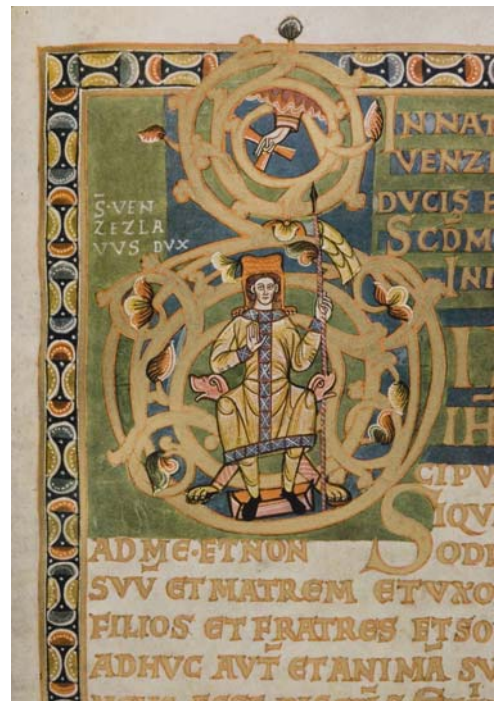 S̄·VEN
ZEZLA
VVS DVX
IN NAT
VENZ
DVCIS
SCD̄M
INI
IH̄
CIPV
SIQV
AD ME·ET NON ODI
SVV̄ ET MATREM ET VXO
FILIOS ET FRATRES ET SO
ADHVC AVT̄ ET ANIMĀ SV